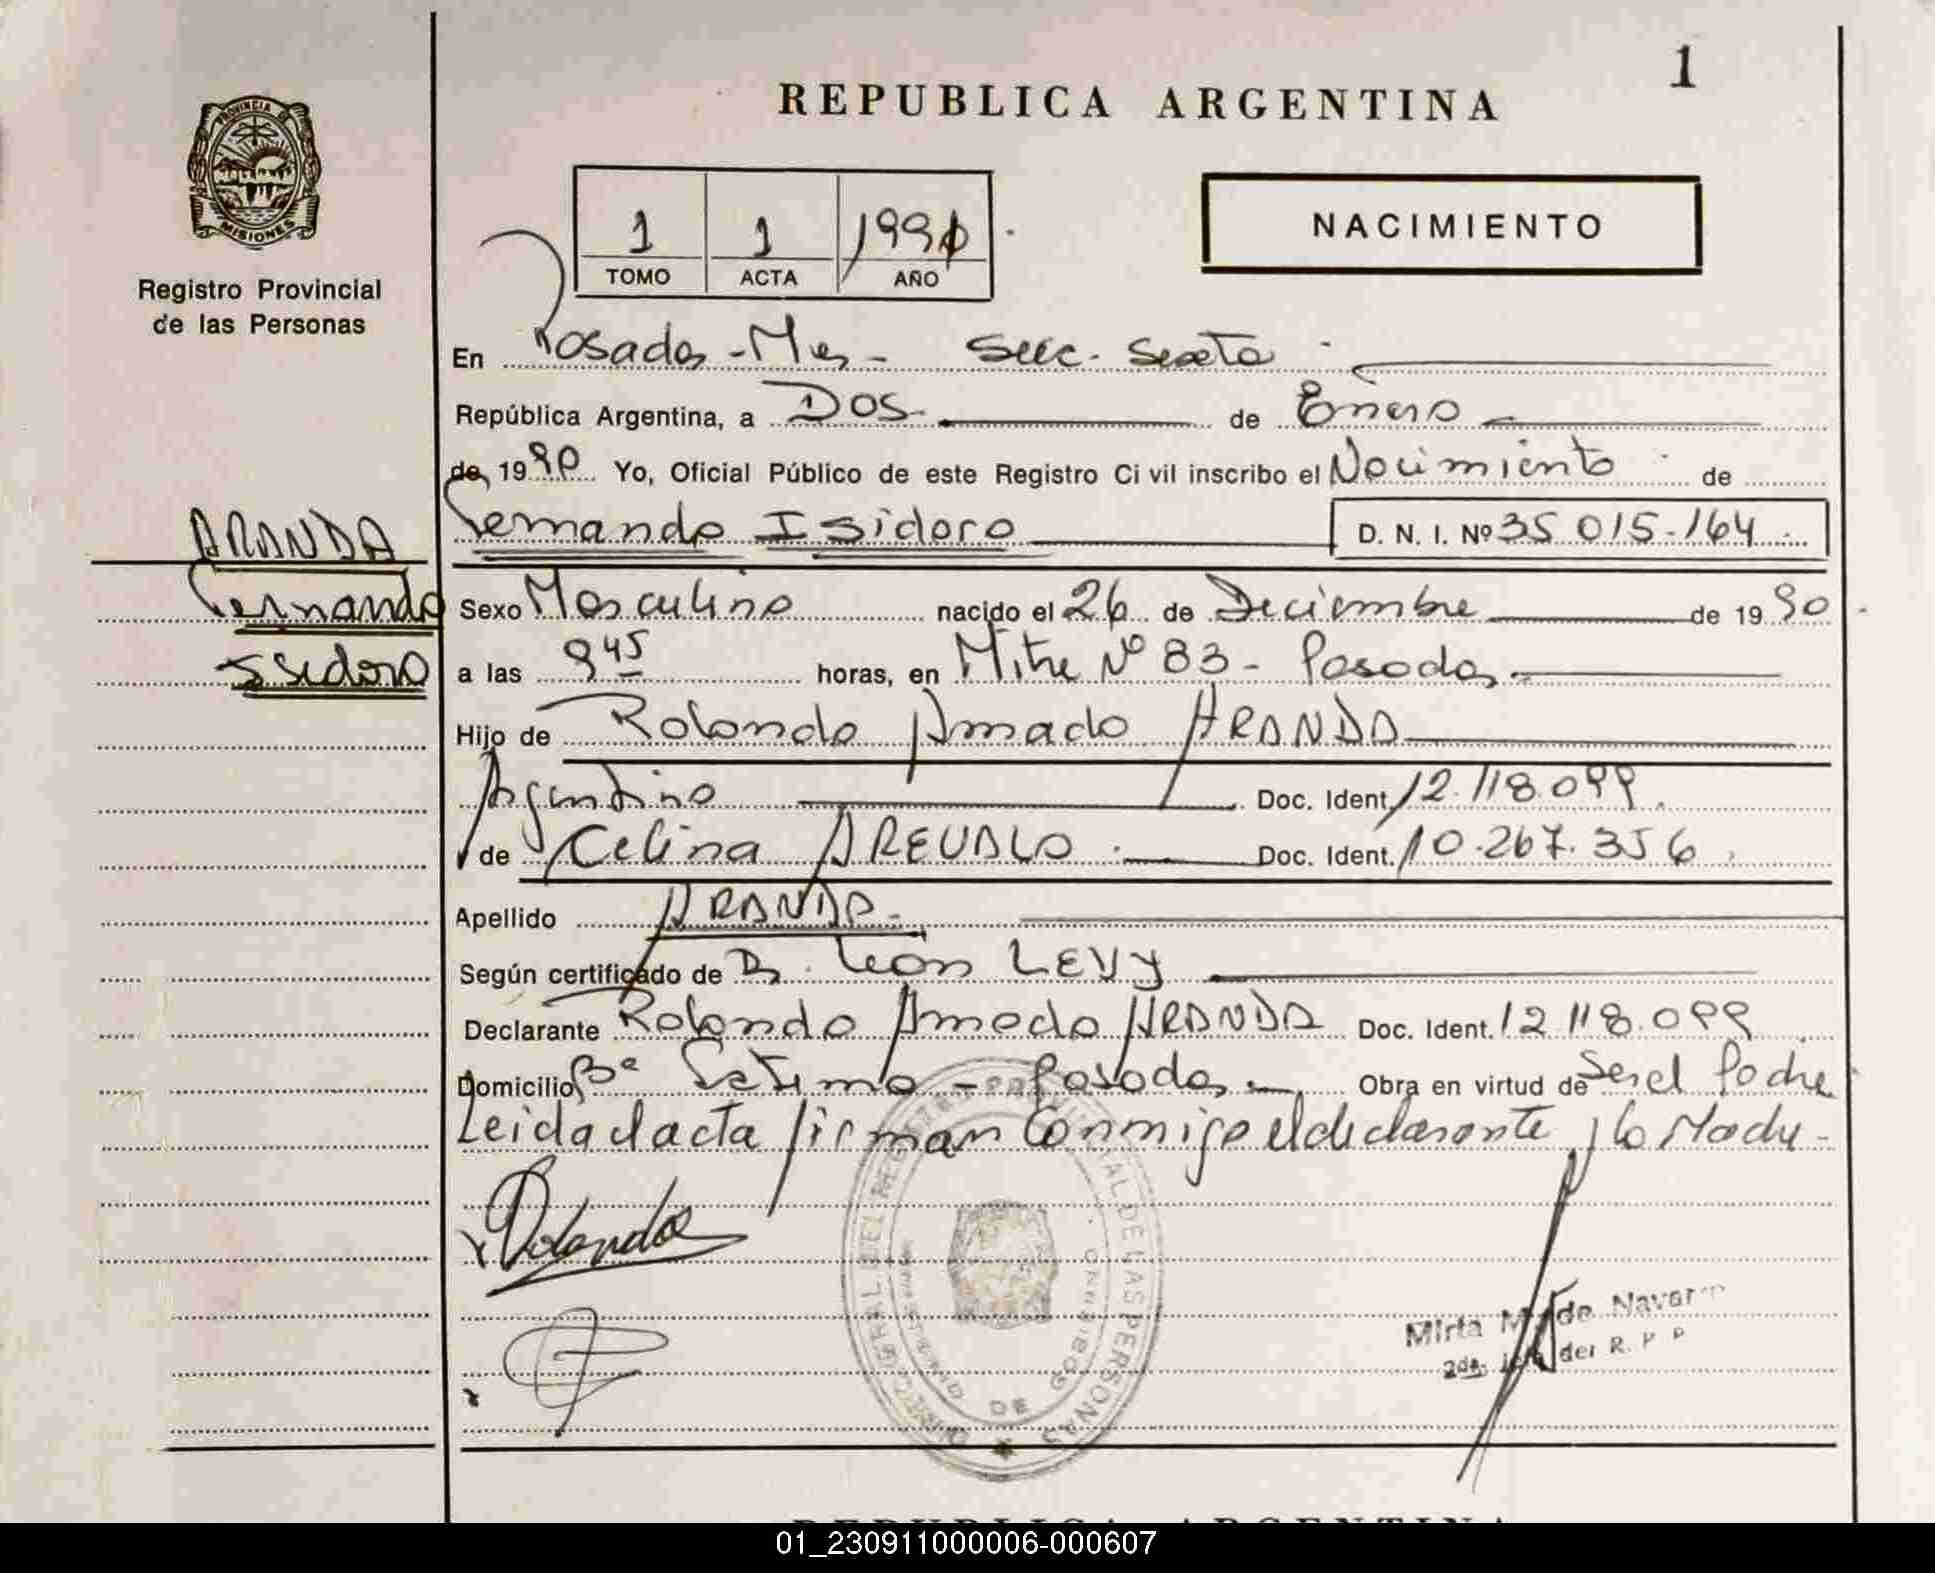 1
REPUBLICA ARGENTINA
PROVINCIA DE
MISIONES
Registro Provincial
de las Personas
NACIMIENTO
1 1 1990
TOMO ACTA AÑO
En Posadas - Mnes - Secc. Sexta
República Argentina, a Dos de Enero
de 1990 Yo, Oficial Público de este Registro Civil inscribo el Nacimiento de
ARANDA
Fernando Isidoro D. N. I. Nº 35.015.164
Fernando
Sexo Masculino nacido el 26 de Diciembre de 1990
Isidoro
a las 9 45 horas, en Mitre Nº 83 - Posadas
Hijo de Rolando Amado ARANDA
Argentino Doc. Ident. 12.118.099
y de Celina AREVALO Doc. Ident. 10.267.356
Apellido ARANDA
Según certificado de Dr. Leon LEVY
Declarante Rolando Amado ARANDA Doc. Ident. 12.118.099
Domicilio Bº Posadas Obra en virtud de Ser el Padre
Leida el acta firman Conmigo el declarante y la Madre
Rolando
DIRECCION GENERAL DEL REGISTRO PROVINCIAL DE LAS PERSONAS
DE
Mirta M. de Navarro
2da. Jefa del R. P. P
REPUBLICA ARGENTINA
01_230911000006-000607